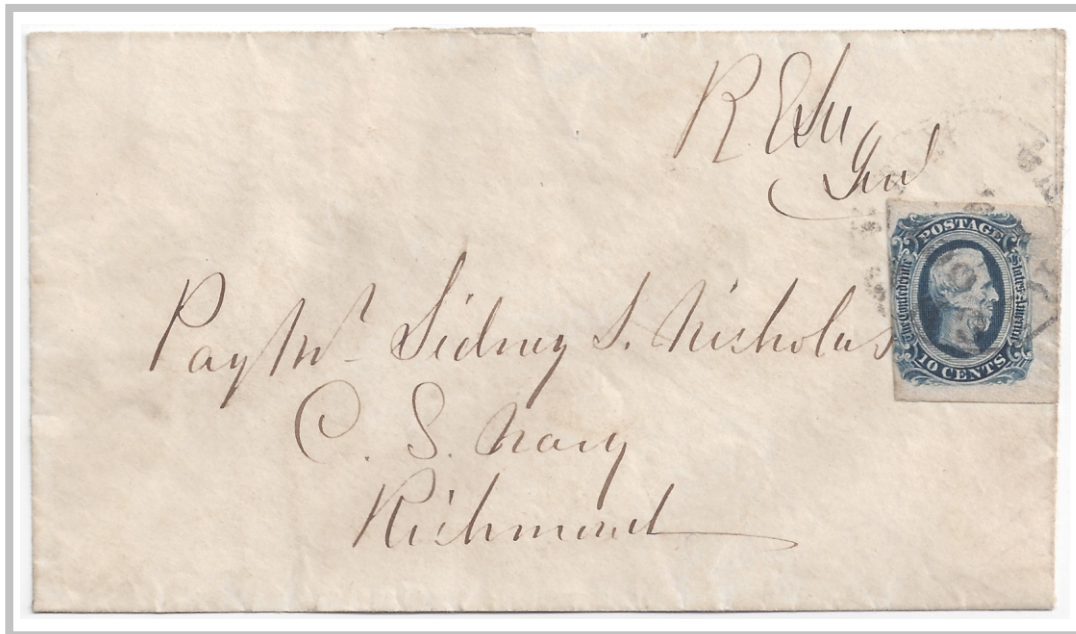 R E Lee
Genl
POSTAGE
The Confederate States of America
10 CENTS
Pay Mr. Sidney S. Nicholas
C. S. Navy
Richmond